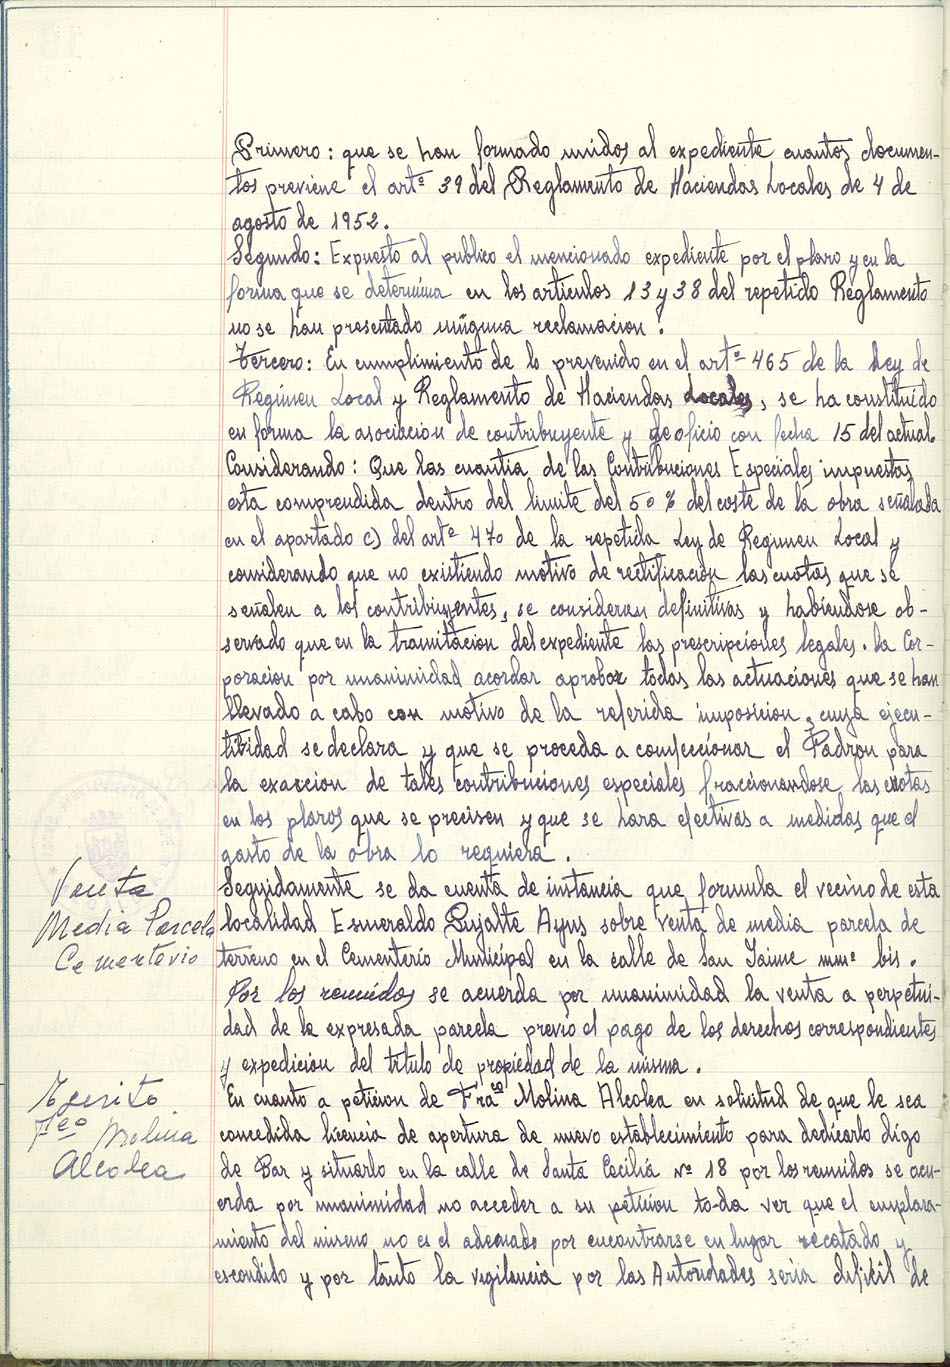 Primero: que se han formado unidos al expediente cuantos documen-
tos previene el artº 39 del Reglamento de Haciendas Locales de 4 de
agosto de 1952.
Segundo: Expuesto al publico el mencionado expediente por el plazo y en la
forma que se determina en los articulos 13 y 38 del repetido Reglamento
no se han presentado ninguna reclamacion.
Tercero: En cumplimiento de lo prevenido en el artº 465 de la Ley de
Regimen Local y Reglamento de Haciendas Locales, se ha constituido
en forma la asociacion de contribuyente y de oficio con fecha 15 del actual.
Considerando: Que las cuantia de las Contribuciones Especiales impuestas
esta comprendida dentro del limite del 50 % del coste de la obra señalada
en el apartado c) del artº 470 de la repetida Ley de Regimen Local y
considerando que no existiendo motivo de rectificacion las cuotas que se
señalen a los contribuyentes, se consideran definitivas y habiendose ob-
servado que en la tramitacion del expediente las prescripciones legales. La Cor-
poracion por unanimidad acordar aprobar todas las actuaciones que se han
llevado a cabo con motivo de la referida imposicion, cuya ejecu-
titidad se declara y que se proceda a confeccionar el Padron para
la exaccion de tales contribuciones especiales fraccionandose las cuotas
en los plazos que se precisen y que se hara efectivas a medidas que el
gasto de la obra lo requiera.
Venta
Media Parcela
Cementerio
Seguidamente se da cuenta de instancia que formula el vecino de esta
localidad Esmeraldo Pujalte Ayus sobre venta de media parcela de
terreno en el Cementerio Municipal en la calle de San Jaime nmº bis.
Por los reunidos se acuerda por unanimidad la venta a perpetui-
dad de la expresada parcela previo el pago de los derechos correspondientes
y expedicion del titulo de propiedad de la misma.
Escrito
Fco Molina
Alcolea
En cuanto a peticion de Fraco Molina Alcolea en solicitud de que le sea
concedida licencia de apertura de nuevo establecimiento para dedicarlo digo
de Bar y situarlo en la calle de Santa Cecilia nº 18 por los reunidos se acu-
erda por unanimidad no acceder a su peticion toda vez que el emplaza-
miento del mismo no es el adecuado por encontrarse en lugar recatado y
escondido y por tanto la vigilancia por las Autoridades seria dificil de